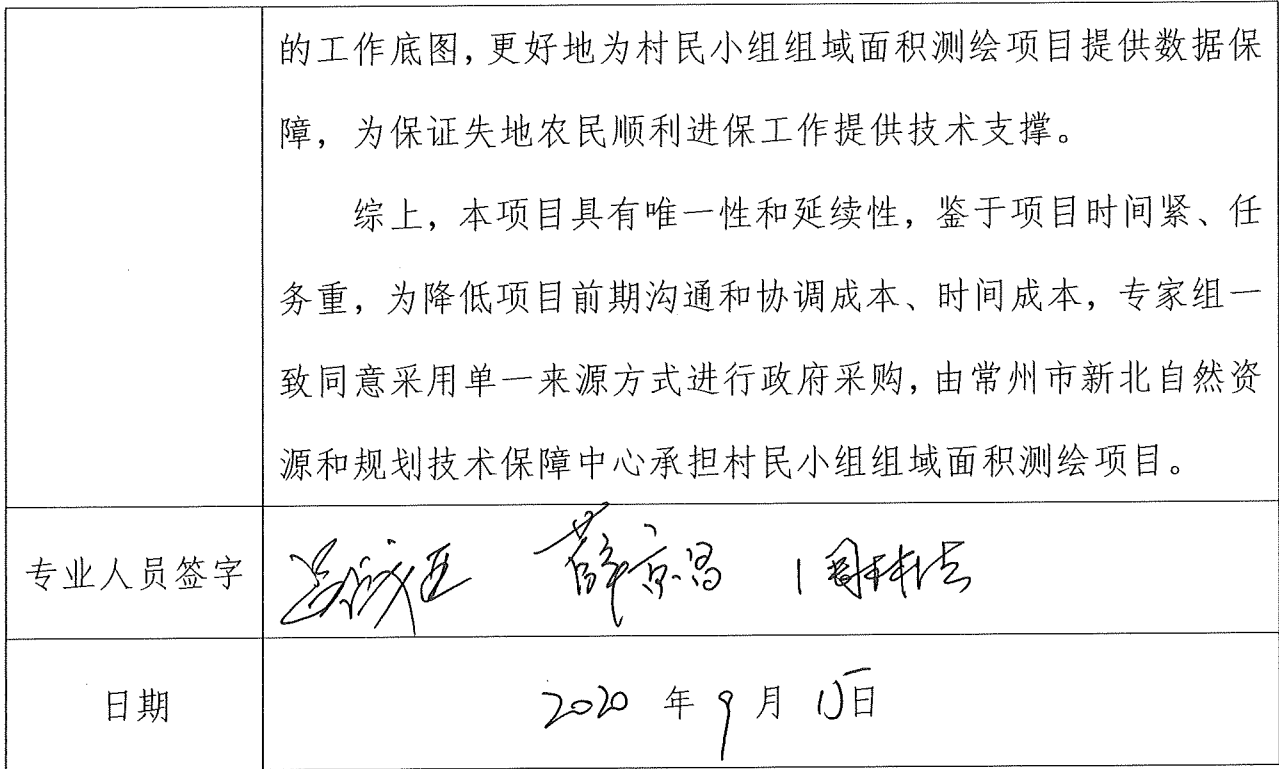 的工作底图,更好地为村民小组组域面积测绘项目提供数据保
障，为保证失地农民顺利进保工作提供技术支撑。
综上，本项目具有唯一性和延续性，鉴于项目时间紧、任
务重，为降低项目前期沟通和协调成本、时间成本，专家组一
致同意采用单一来源方式进行政府采购,由常州市新北自然资
源和规划技术保障中心承担村民小组组域面积测绘项目。
专业人员签字 薛京昌
日期 2020 年 9 月 15日